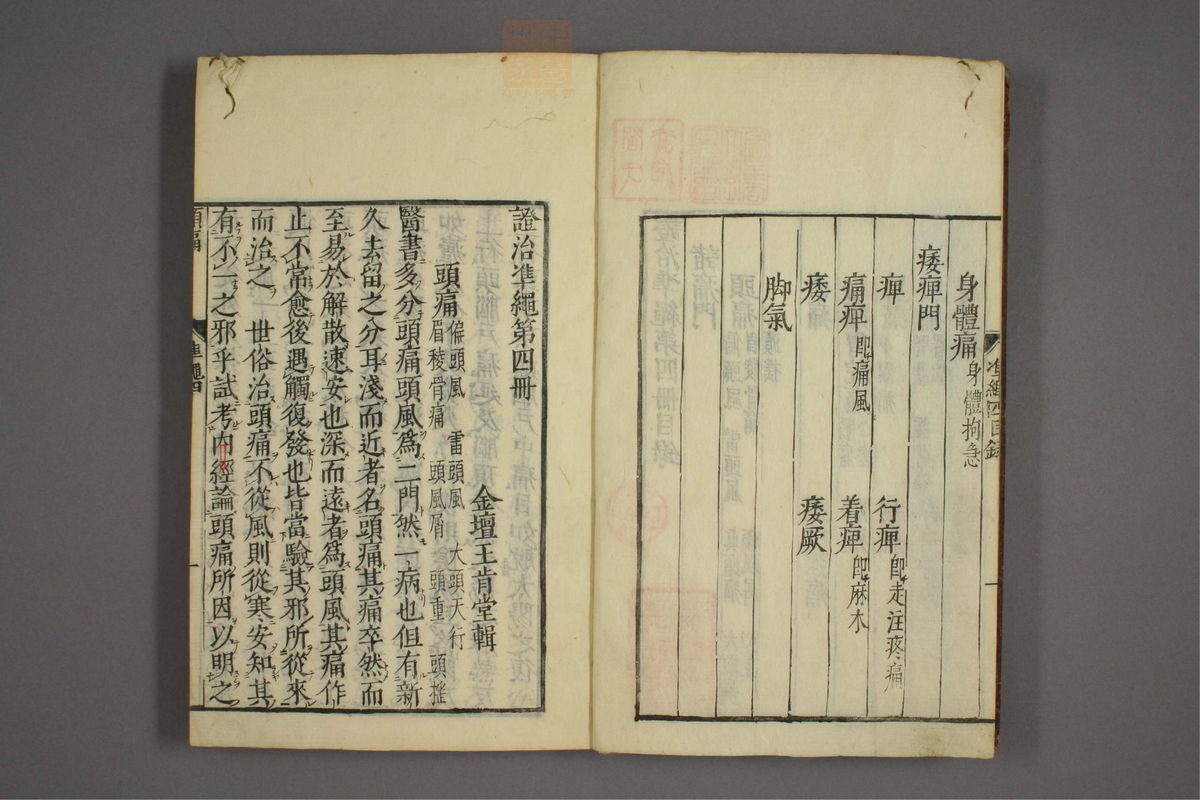 身體痛 身體拘急
痿痺門
痺 行痺 卽走注疼痛
痛痺 卽痛風 着痺 卽麻木
痿 痿厥
脚氣
證治準繩第四冊
金壇王肯堂輯
頭痛 偏頭風 雷頭風 大頭天行
眉稜骨痛 頭風屑 頭重 頭搖
醫書多分頭痛頭風爲二門然一病也但有新
久去留之分耳淺而近者名頭痛其痛卒然而
至易於解散速安也深而遠者爲頭風其痛作
止不常愈後遇觸復發也皆當驗其邪所從來
而治之 世俗治頭痛不從風則從寒安知其
有不一之邪乎試考內經論頭痛所因以明之